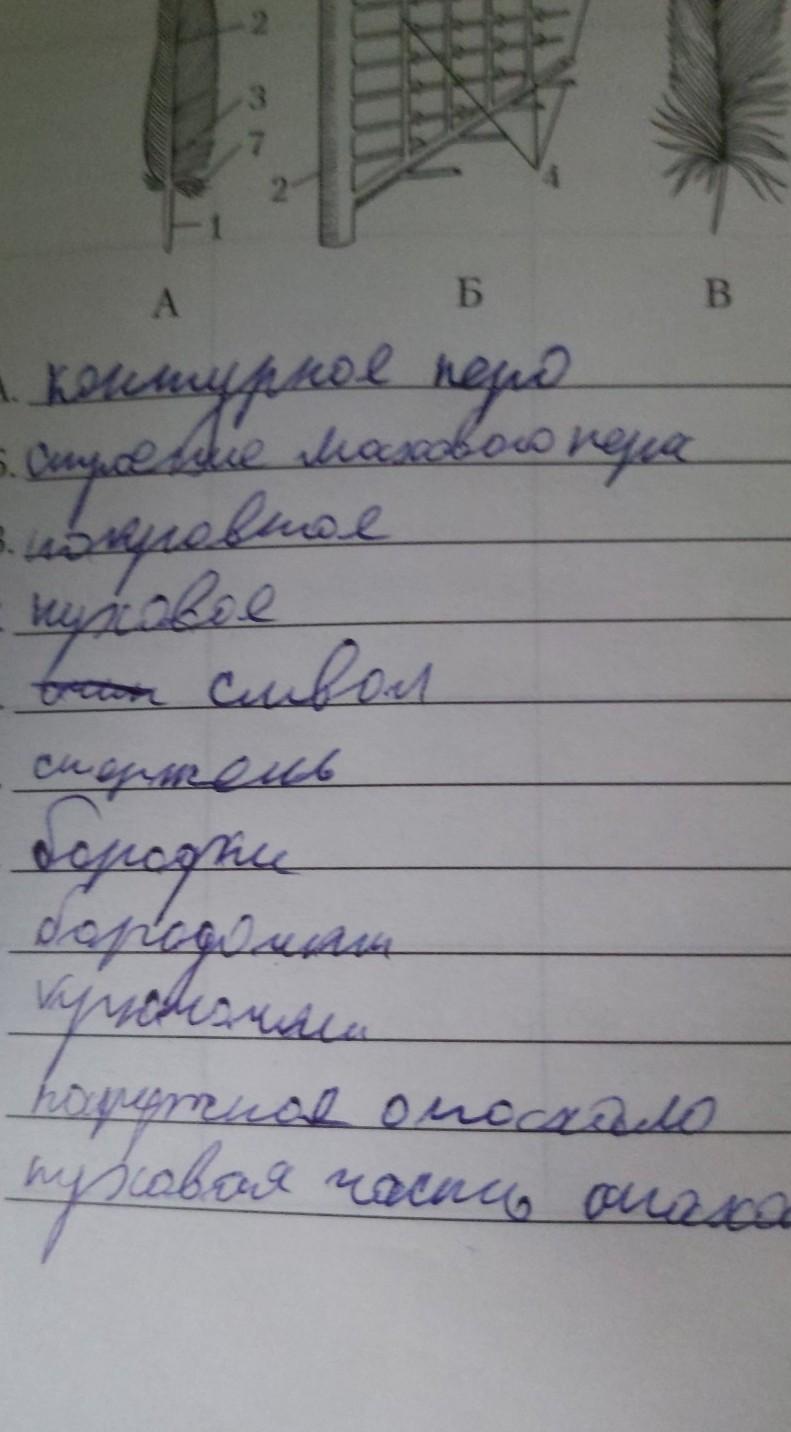 2
3
7
2
4
1
А Б В
А. контурное перо
Б. строение махового пера
В. покровное
пуховое
ствол
стержень
бородки
бородочки
крючочки
наружное опахало
пуховая часть опаха